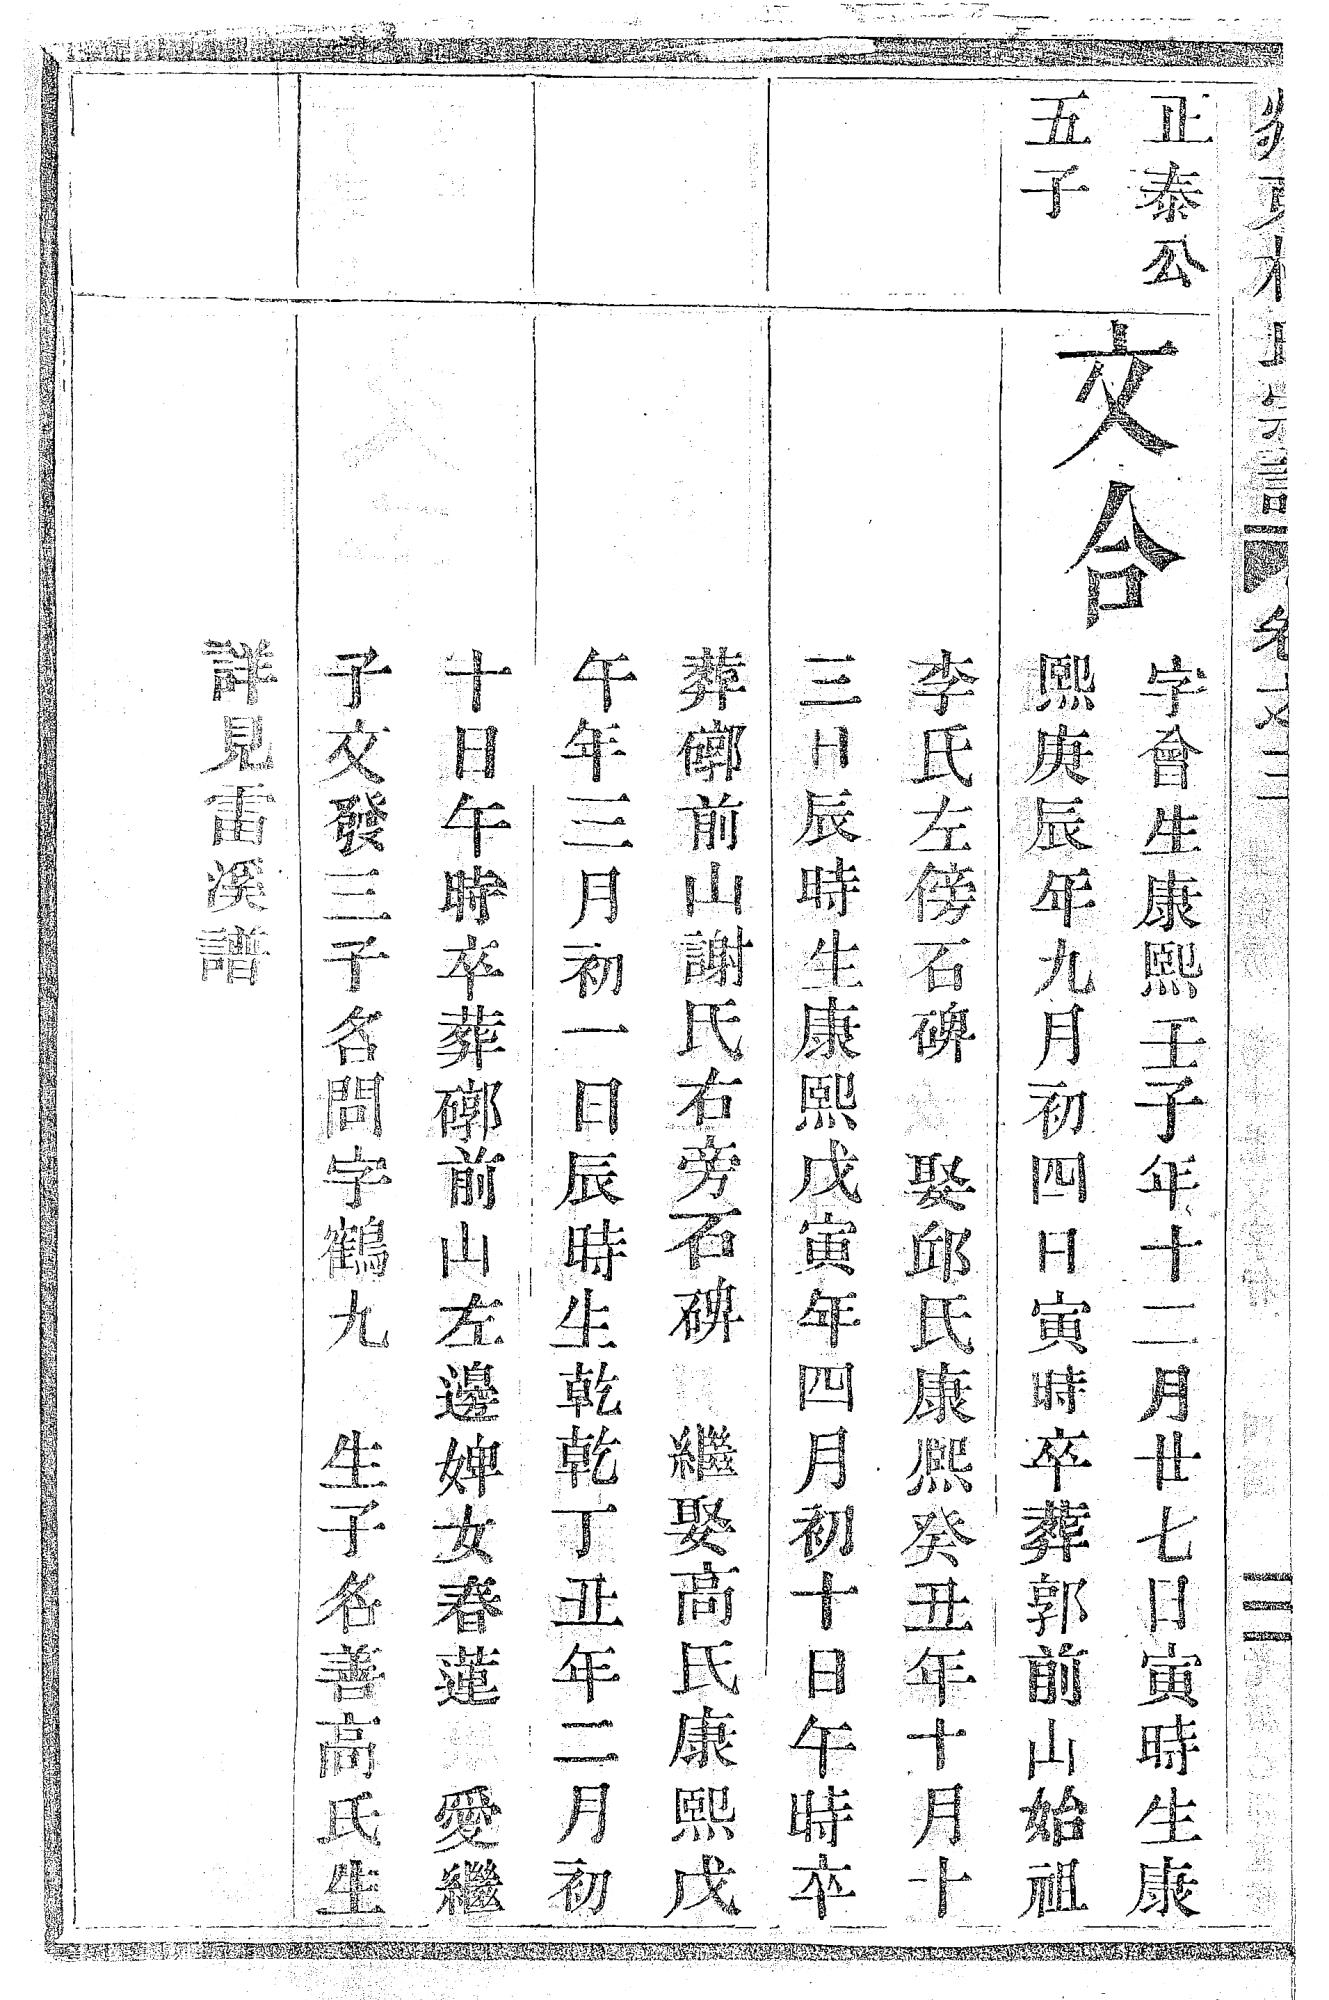 宗譜 卷之 三
正泰公
五子
文合
字會生康熙壬子年十二月廿七日寅時生康
熙庚辰年九月初四日寅時卒葬郭前山始祖
李氏左傍石碑 娶邱氏康熙癸丑年十月十
三日辰時生康熙戊寅年四月初十日午時卒
葬前山謝氏右旁石碑 繼娶高氏康熙戊
午年三月初一日辰時生乾乾丁丑年二月初
十日午時卒葬前山左邊婢女春蓮 愛繼
子文發三子名問字鶴九 生子名善高氏生
詳見雷溪譜